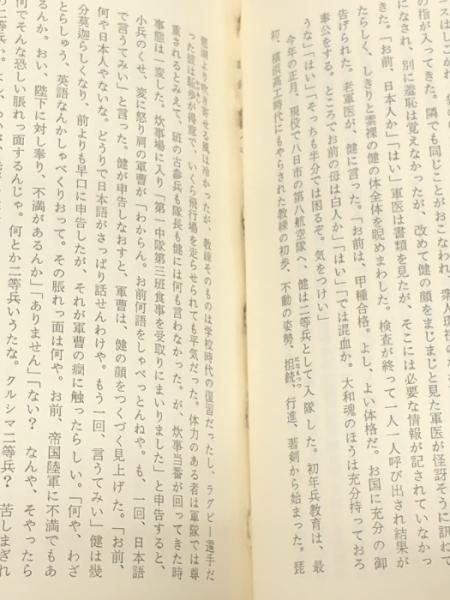 の指が入ってきた。隣でも同じことがおこなわれ、
になされ、別に羞恥は覚えなかったが、改めて健の顔をまじまじと見た軍医が怪訝そうに訊ねて
きた。「お前、日本人か」「はい」軍医は書類を見たが、そこには必要な情報が記されていなかっ
たらしく、しきりと素裸の健の体全体を睨めまわした。検査が終って一人一人呼び出され結果が
告げられた。老軍医が、健に言った。「お前は、甲種合格。よし、よい体格だ。お国に充分の御
奉公をする。ところでお前の母は白人か」「はい」「では混血か。大和魂のほうは充分持っておろ
うな」「はい」「そっちも半分では困るぞ。気をつけい」
今年の正月、現役で八日市の第八航空隊へ、健は二等兵として入隊した。初年兵教育は、最
初、横浜高工時代にもやらされた教練の初歩、不動の姿勢、担銃、行進、著剣から始まった。琵
琶湖より吹き寄せる風は冷かったが、教練そのものは学校時代の復習だったし、ラグビー選手だ
った彼は駈歩が得意で、いくら飛行場を走らせられても平気だった。体力のある者は軍隊では尊
重されるとみえて、班の古参兵も隊長も健には何も言わなかった。が、炊事当番が回ってきた時
事態は一変した。炊事場に入り「第一中隊第三班食事を受取りにまいりました」と申告すると、
小兵のくせ、変に怒り肩の軍曹が「わからん。お前何語をしゃべっとんねや。も、一回、日本語
で言うてみい」と言った。健が申告しなおすと、軍曹は、健の顔をつくづく見上げた。「お前、
何や日本人やないな。どうりで日本語がさっぱり話せんわけや。もう一回、言うてみい」健は幾
分莫迦らしくなり、前よりも早口に申告したが、それが軍曹の癇に触ったらしい。「何や、わざ
とらしゅう、英語なんかしゃべくりおって。その脹れっ面は何や。お前、帝国陸軍に不満でもあ
るんか。おい、陛下に対し奉り、不満があるんか」「ありません」「ない？　なんや、そやったら
何でそんな恐しい脹れっ面するんじゃ。何とか二等兵いうたな。クルシマ二等兵？　苦しまぎれ